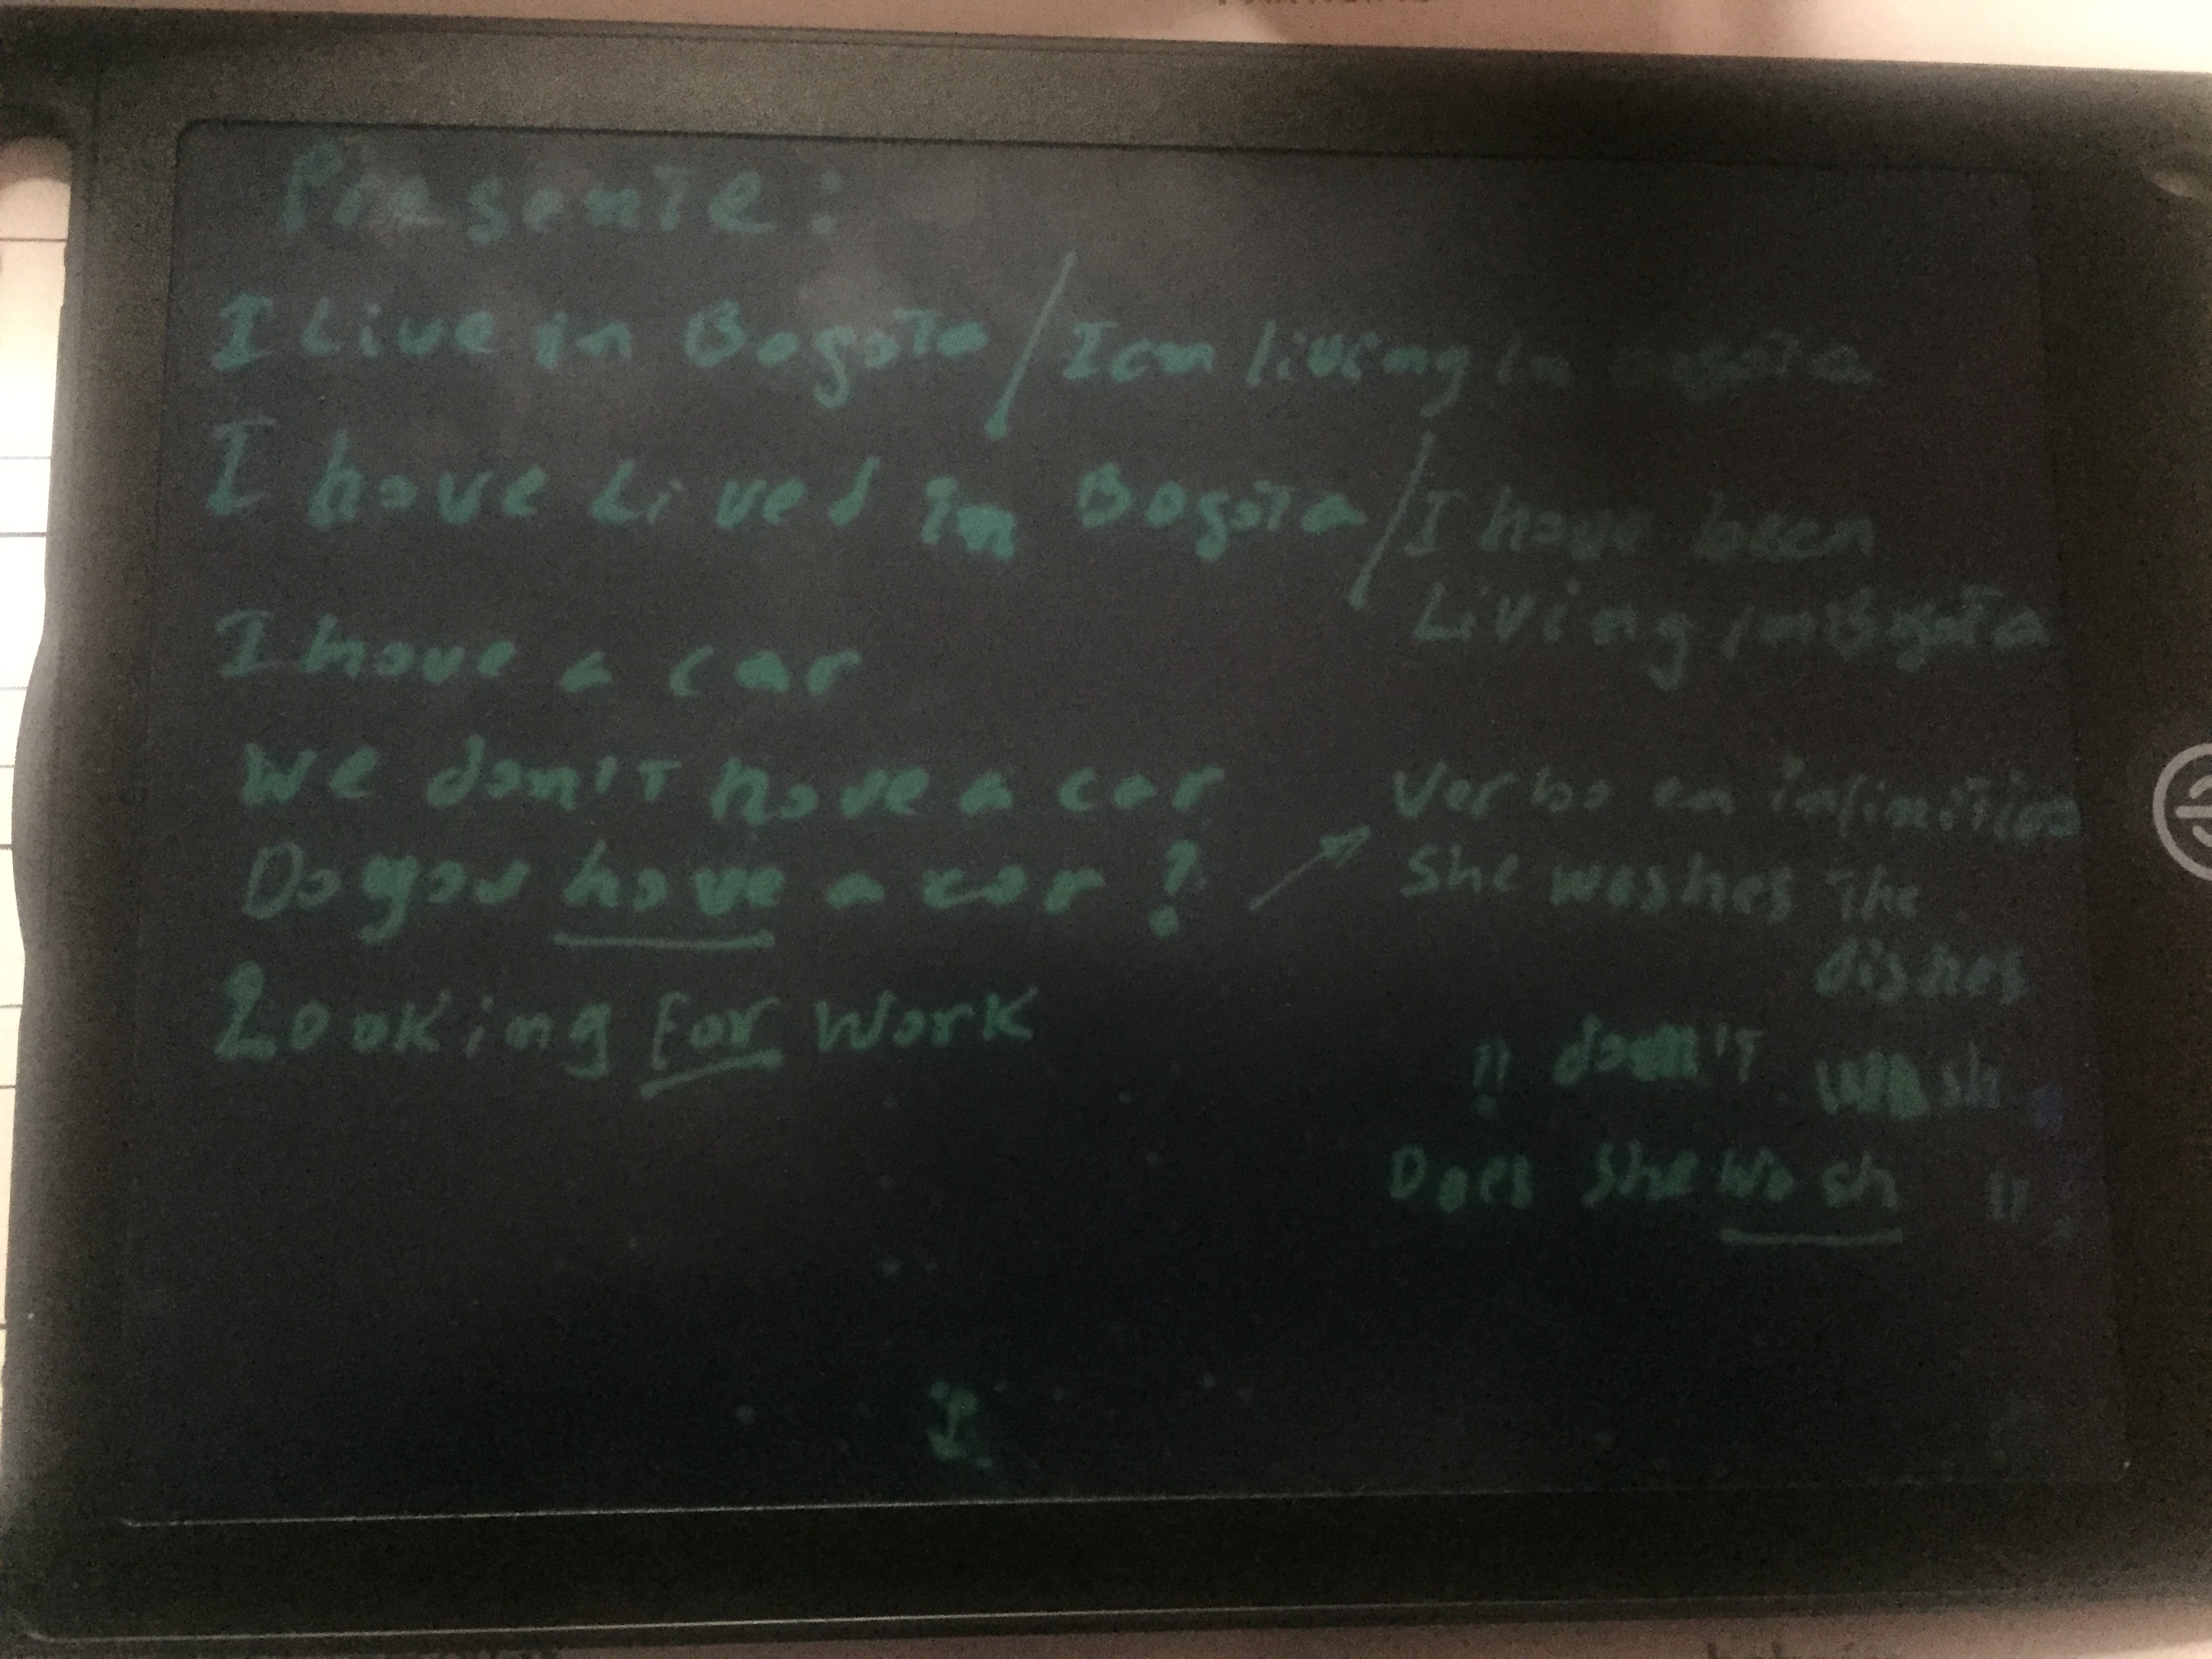 Presente:
I Live in Bogota / I am living in Bogota
I have Lived in Bogota / I have been
Living in Bogota
I have a car
We don't have a car
Do you have a car ?
Looking for work
Verbo en infinitivo
She washes the
dishes
" don't wash
Does she wash "
I